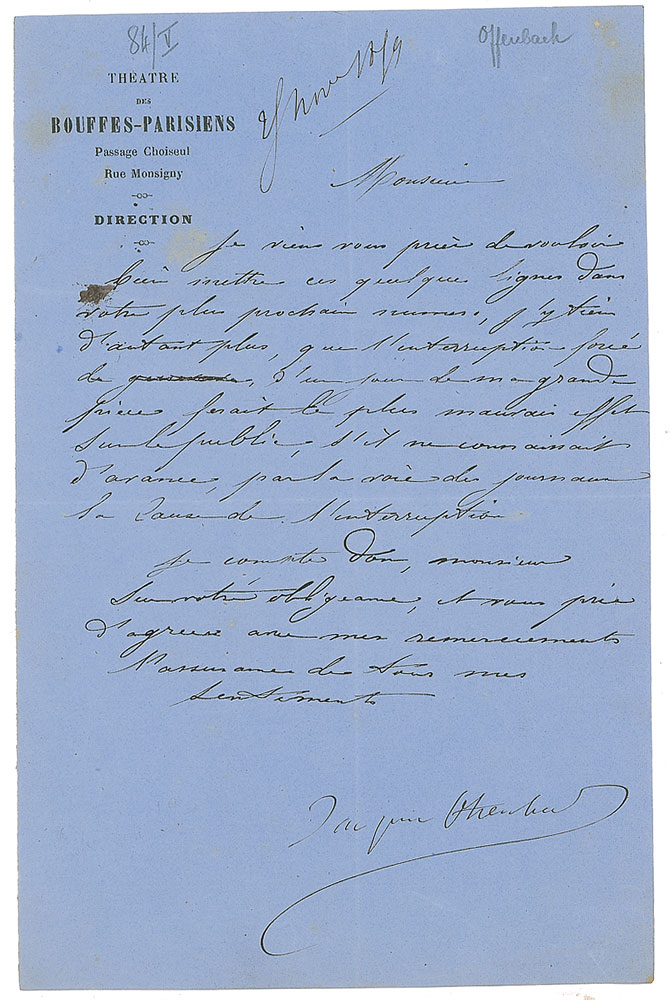 84/V
Offenbach
THÉATRE
DES
BOUFFES-PARISIENS
Passage Choiseul
Rue Monsigny
DIRECTION
Nov 1859
Monsieur
Je viens vous prier de vouloir
bien mettre ces quelques lignes dans
votre plus prochain numero, j'y tiens
d'autant plus, que l'interruption forcé
de, d'un soir de ma grande
pièce ferait le plus mauvais effet
sur le public, s'il ne connaissait
d'avance, par la voie des journaux
la cause de l'interruption
Je compte donc, monsieur
sur votre obligeance, et vous prie
d'agreer avec mes remerciements
l'assurance de tous mes
sentiments
Jacques Offenbach